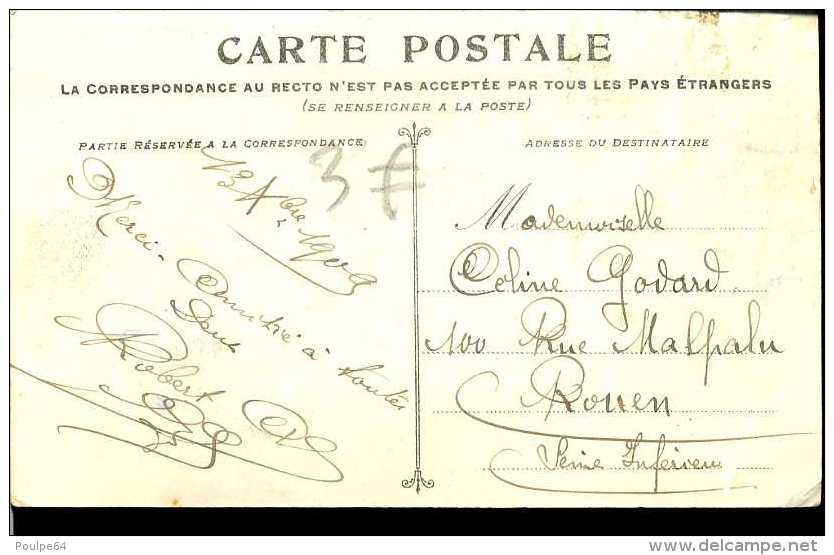 CARTE POSTALE
LA CORRESPONDANCE AU RECTO N'EST PAS ACCEPTÉE PAR TOUS LES PAYS ÉTRANGERS
(SE RENSEIGNER A LA POSTE)
PARTIE RÉSERVÉE A LA CORRESPONDANCE
3 €
Merci
à toutes
Robert
ADRESSE DU DESTINATAIRE
Mademoiselle
Celine Godard
100 Rue Malpalu
Rouen
Seine Inferieu
Poulpe64
delcampe.net